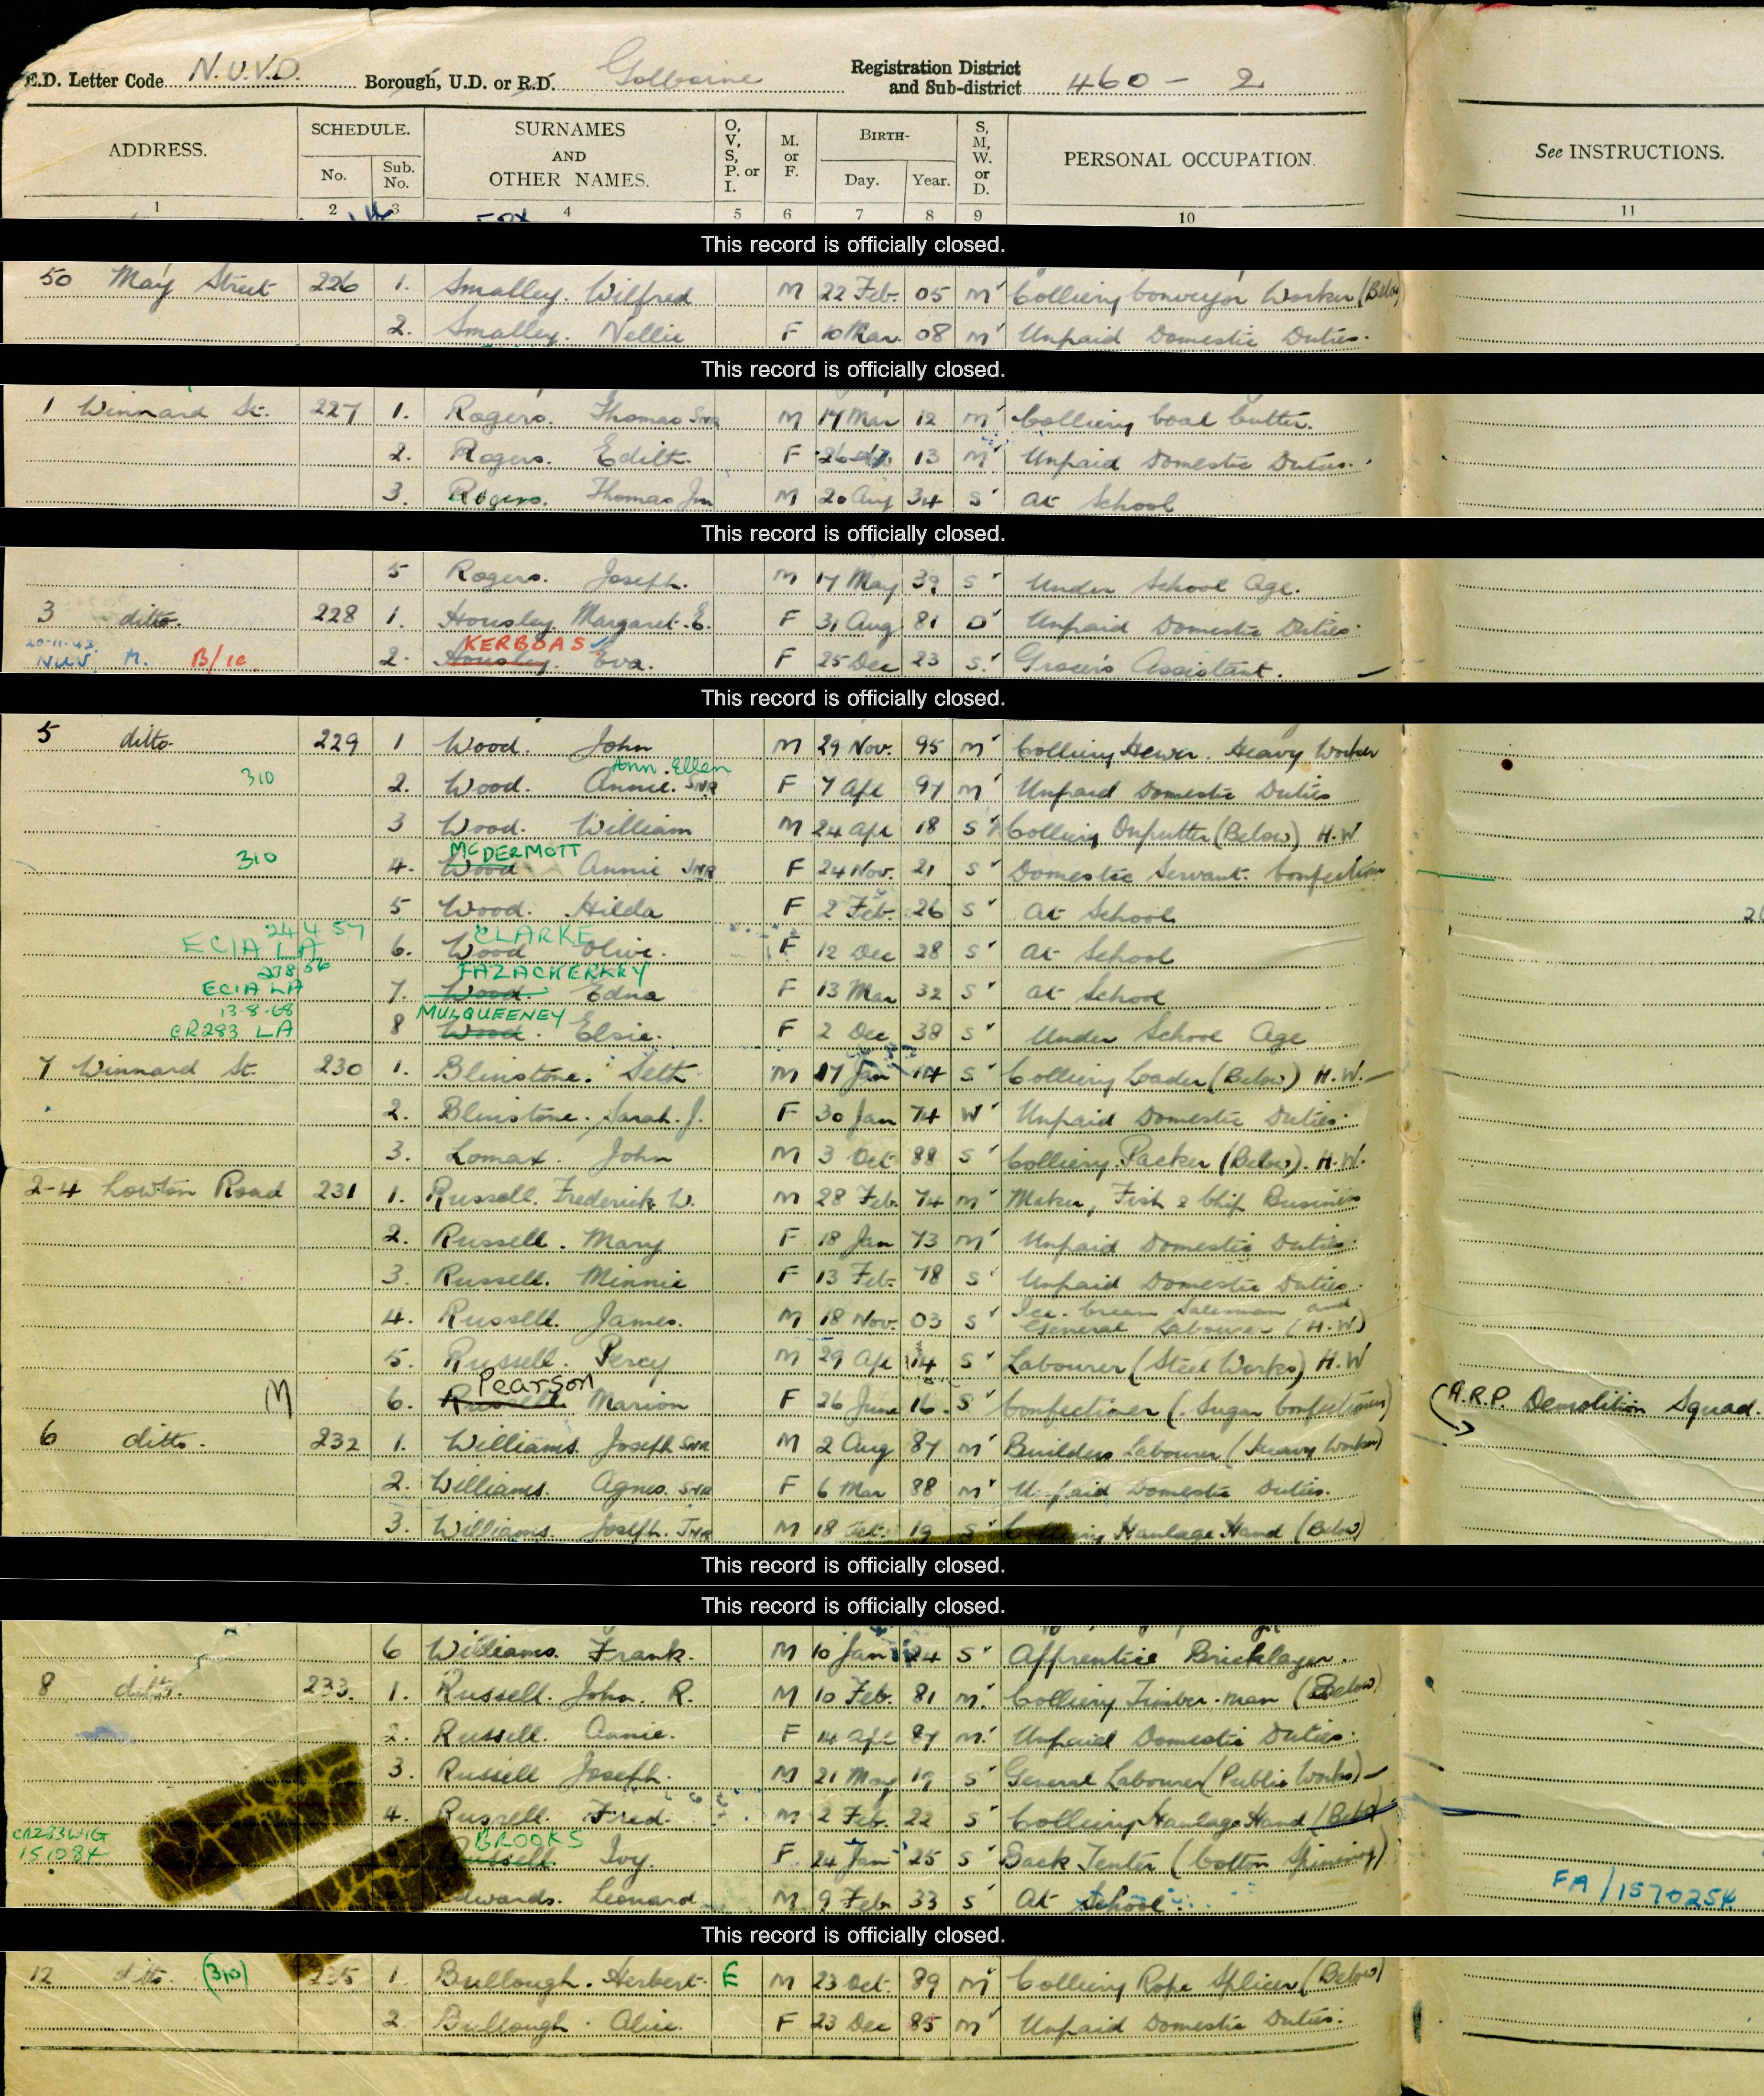 E.D. Letter Code N.U.V.D. Borough, U.D. or R.D. Golborne Registration District and Sub-district 460 - 2
ADDRESS. SCHEDULE. No. Sub. No. SURNAMES AND OTHER NAMES. O, V, S, P. or I. M. or F. BIRTH- Day. Year. S, M, W. or D. PERSONAL OCCUPATION. See INSTRUCTIONS.
1 2 3 4 5 6 7 8 9 10 11
This record is officially closed.
50 May Street 226 1. Smalley. Wilfred M 22 Feb. 05 M Colliery Conveyor Worker (Below)
2. Smalley. Nellie F 10 Mar. 08 M Unpaid Domestic Duties.
This record is officially closed.
1 Winnard St. 227 1. Rogers. Thomas Snr M 17 Mar 12 M Colliery Coal Cutter.
2. Rogers. Edith. F 26 13 M Unpaid Domestic Duties.
3. Rogers. Thomas Jnr M 20 Aug 34 S At School
This record is officially closed.
5 Rogers. Joseph. M 17 May 39 S Under School Age.
3 ditto. 228 1. Housley Margaret. E. F 31 Aug 81 D Unpaid Domestic Duties.
20-11-43. KERBOAS
NUV. M. B/10 2. Housley. Eva. F 25 Dec 23 S. Grocer's Assistant.
This record is officially closed.
5 ditto 229 1 Wood. John M 29 Nov. 95 M Colliery Hewer. Heavy Worker
Ann. Ellen
310 2. Wood. Annie. SNR F 7 Apl 97 M Unpaid Domestic Duties
3 Wood. William M 24 Apl 18 S Colliery Onputter (Below) H.W.
McDERMOTT
310 4. Wood Annie JNR F 24 Nov. 21 S Domestic Servant. Confection
5 Wood. Hilda F 2 Feb. 26 S At School
24 4 57 CLARKE
ECIA LA 6. Wood Olive. F 12 Dec 28 S At School
FAZACKERLEY
ECIA LA 7. Wood. Edna F 13 Mar 32 S At School
13-8-68 MULQUEENEY
CR283 LA 8 Wood. Elsie. F 2 Dec 38 S Under School Age
7 Winnard St. 230 1. Blinstone. Seth M 17 Jan 14 S Colliery Loader (Below) H.W.
2. Blinstone. Sarah. J. F 30 Jan 74 W Unpaid Domestic Duties.
3. Lomax. John M 3 Oct 88 S Colliery Packer (Below). H.W.
2-4 Lowton Road 231 1. Russell. Frederick W. M 28 Feb. 74 M Maker, Fish & Chip Business
2. Russell. Mary F 18 Jan 73 M Unpaid Domestic Duties.
3. Russell. Minnie F 13 Feb. 78 S Unpaid Domestic Duties.
4. Russell. James. M 18 Nov. 03 S Ice. Cream Salesman and General Labourer (H.W)
5. Russell. Percy M 29 Apl 14 S Labourer (Steel Works) H.W
Pearson
M 6. Russell. Marion F 26 June 16. S Confectioner (. Sugar Confectioner) A.R.P. Demolition Squad.
6 ditto. 232 1. Williams. Joseph SNR M 2 Aug 87 M Builders Labourer (Heavy Worker)
2. Williams. Agnes. SNR F 6 Mar 88 M Unpaid Domestic Duties.
3. Williams. Joseph. JNR M 18 19 S Colliery Haulage Hand (Below)
This record is officially closed.
This record is officially closed.
6 Williams. Frank. M 10 Jan 24 S Apprentice Bricklayer.
8 ditto. 233. 1. Russell. John. R. M 10 Feb. 81 M. Colliery Timber-man (Below)
2. Russell. Annie. F 14 Apl 87 M. Unpaid Domestic Duties.
3. Russell Joseph. M 21 May 19 S General Labourer (Public Works)
4. Russell. Fred. M 2 Feb. 22 S Colliery Haulage Hand (Below)
CR283 WIG BROOKS
151084 Russell. Ivy. F 24 Jan 25 S Back Tenter (Cotton Spinning)
Edwards. Leonard M 9 Feb 33 S At School. FA/1570254
This record is officially closed.
12 ditto. (310) 235 1. Bullough. Herbert. E M 23 Oct. 89 M Colliery Rope Splicer (Below)
2. Bullough. Alice. F 23 Dec 85 M Unpaid Domestic Duties.